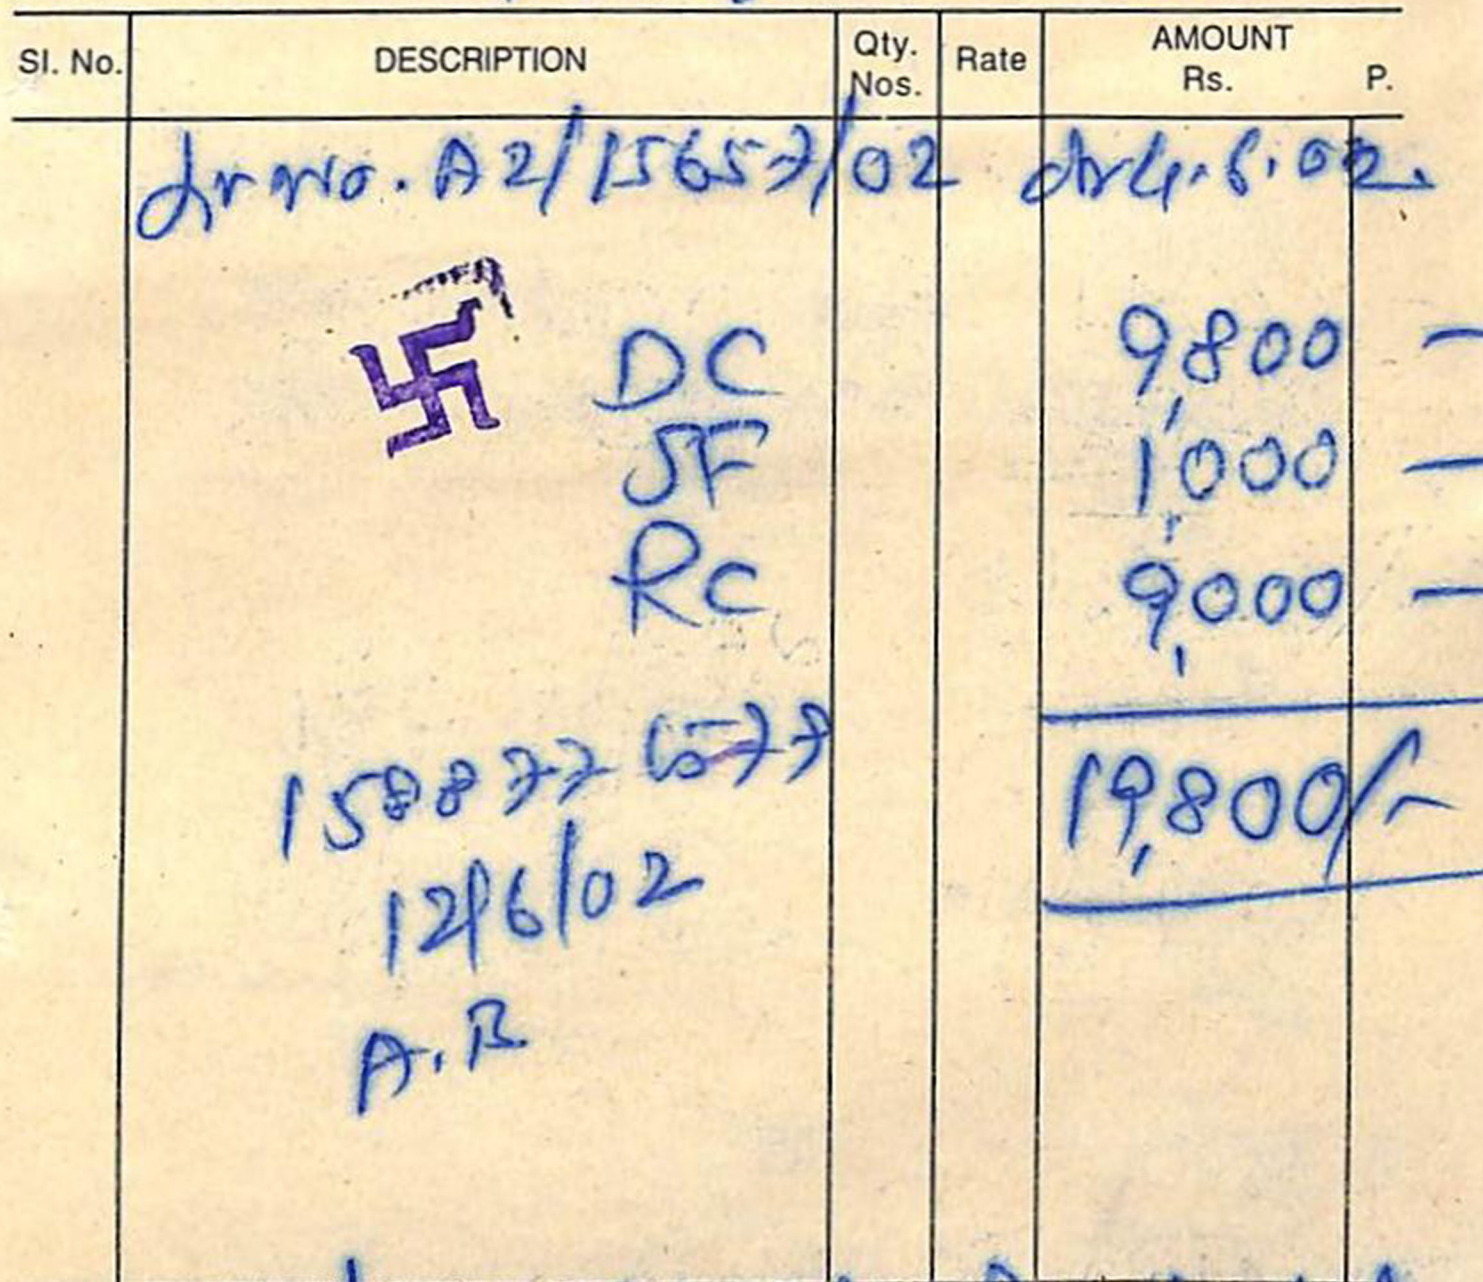 Sl. No. DESCRIPTION Qty. Nos. Rate AMOUNT Rs. P.
No. A2/15657/02 4.6.02.
DC 9,800 —
SF 1,000 —
RC 9,000 —
19,800/-
12/6/02
A.B